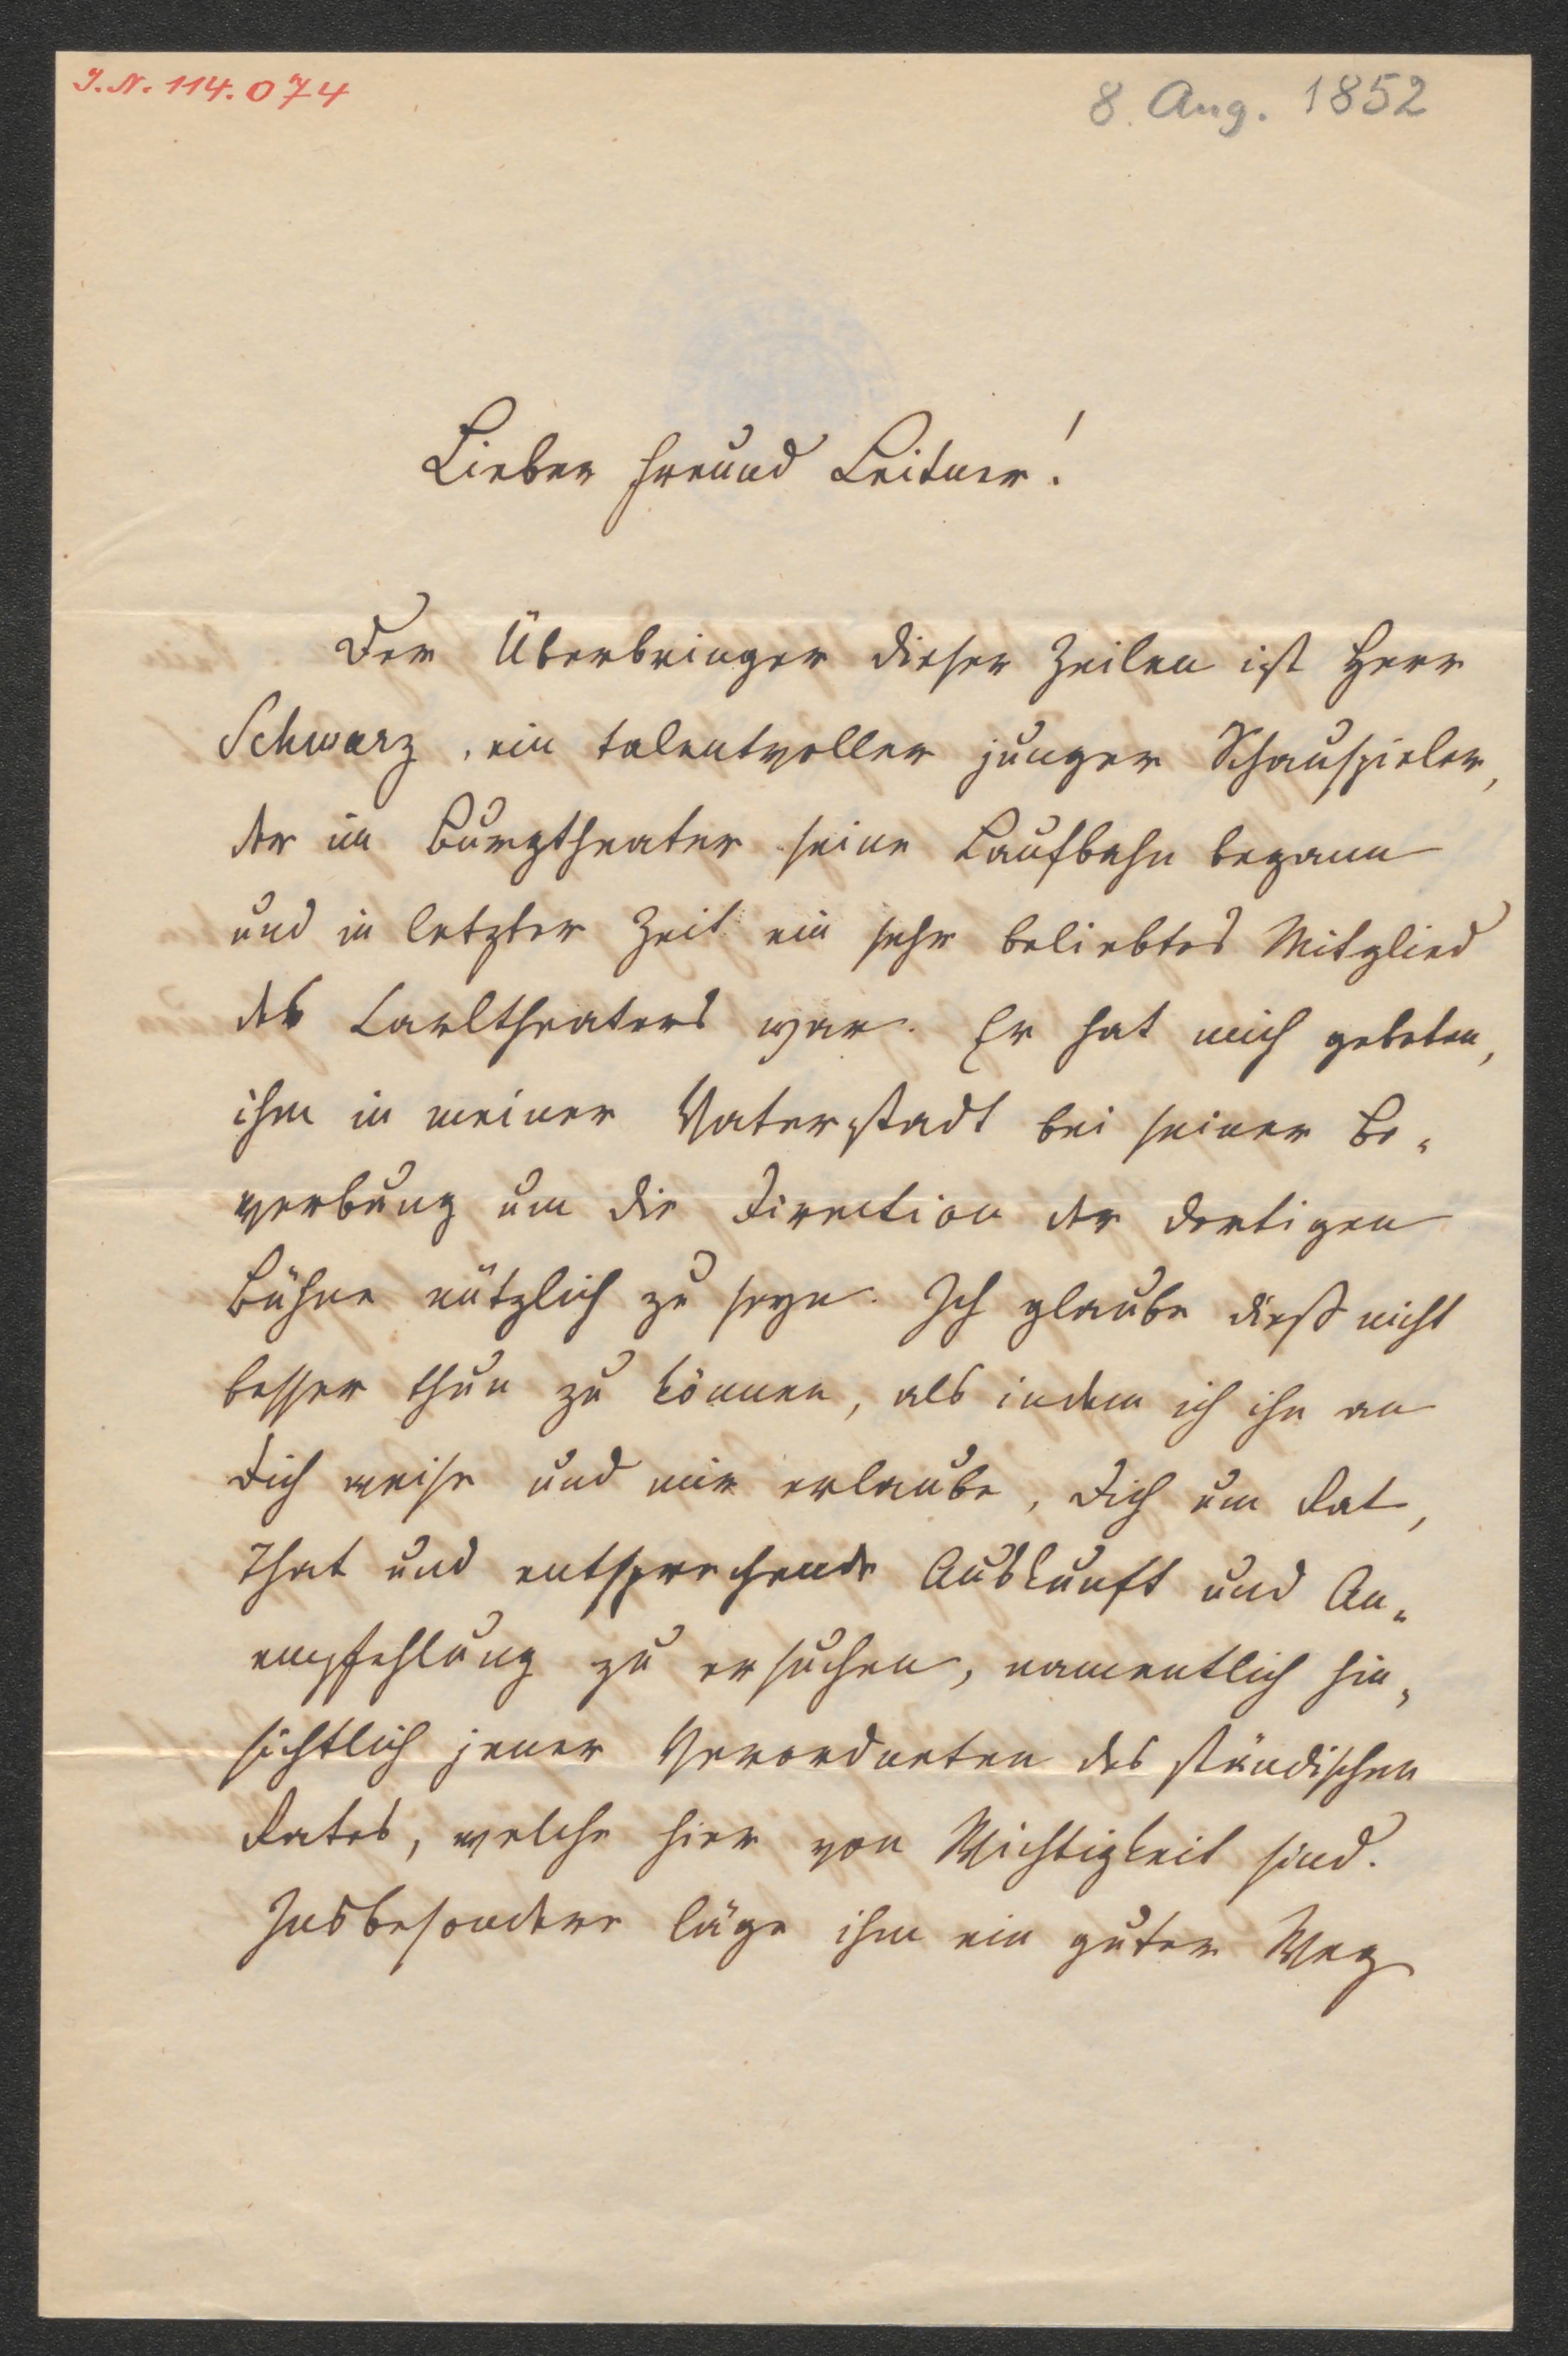 J. N. 114.074
8. Aug. 1852
Lieber Freund Leitner!
Der Überbringer dieser Zeilen ist Herr
Schwarz, ein talentvoller junger Schauspieler,
der im Burgtheater seine Laufbahn begann
und in letzter Zeit ein sehr beliebtes Mitglied
des Carltheaters war. Er hat mich gebeten,
ihm in meiner Vaterstadt bei seiner Be-
werbung um die Direction der dortigen
Bühne nützlich zu seyn. Ich glaube dieß nicht
besser thun zu können, als indem ich ihn an
Dich weise und mir erlaube, Dich um Rat,
That und entsprechende Auskunft und An-
empfehlung zu ersuchen, namentlich hin-
sichtlich jener Verordneten des ständischen
Rates, welche hier von Wichtigkeit sind.
Insbesondere läge ihm ein guter Weg